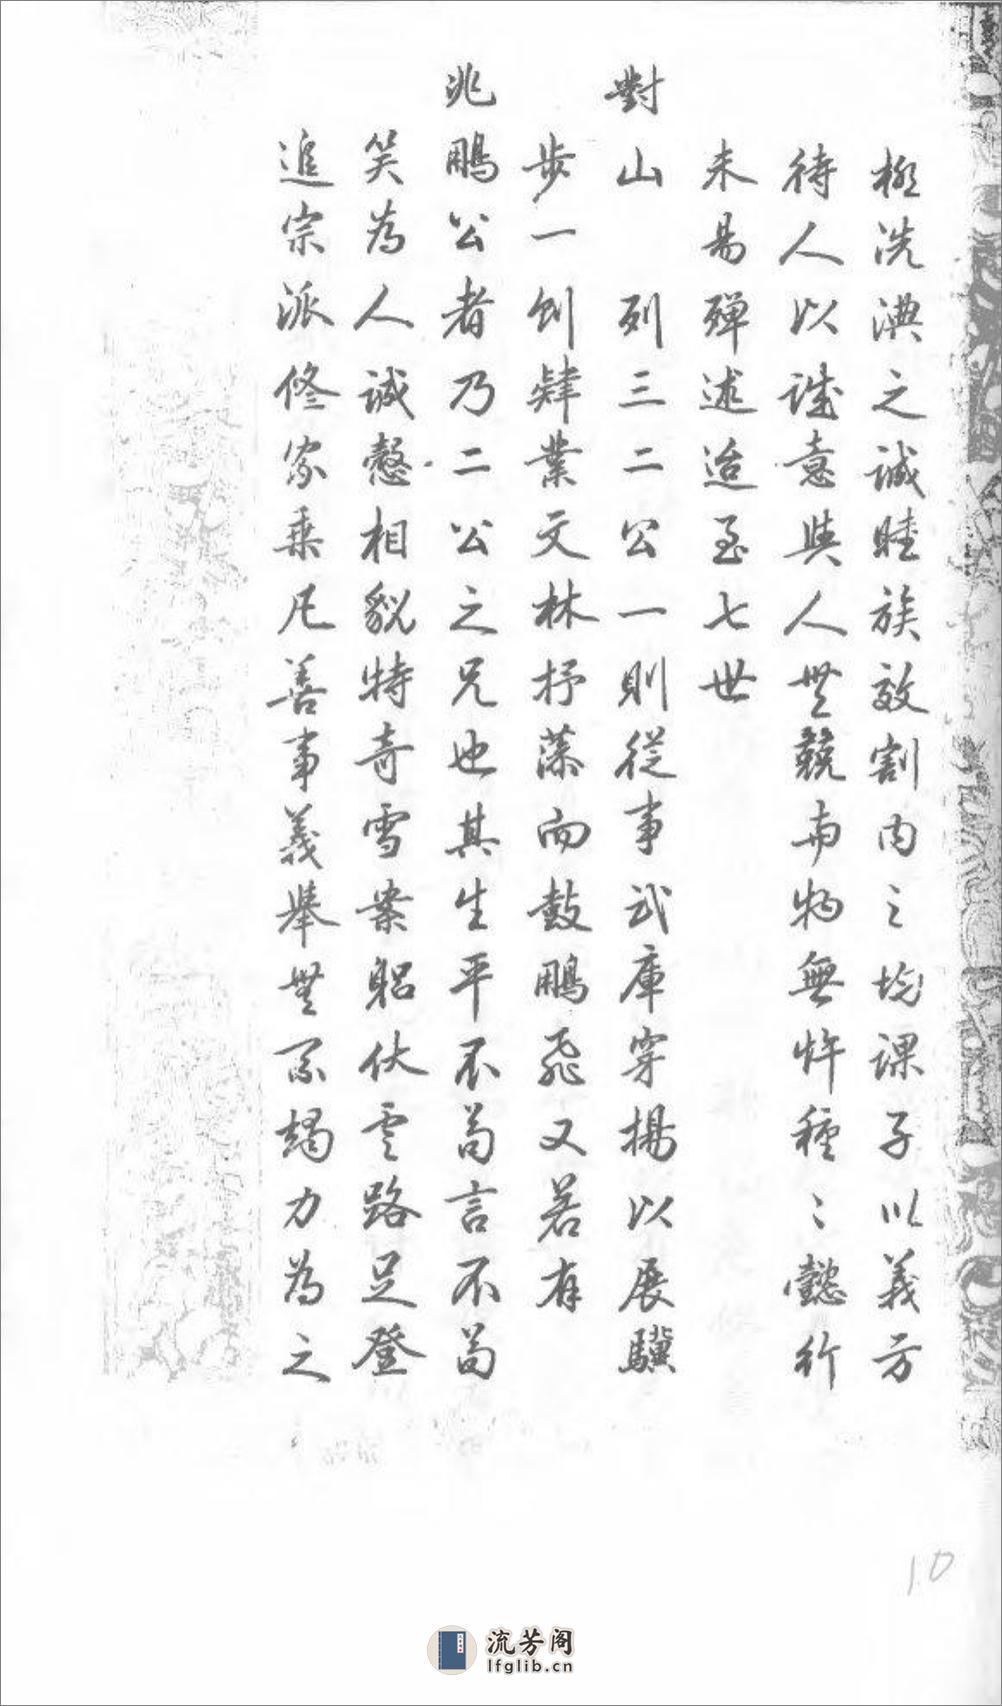 極洗腆之誠睦族效割肉之均課子以義方
待人以誠意與人無競与物無忤種〻懿行
未易殫述迨至七世
對山 列三二公一則從事武庫穿楊以展驥
步一則肄業文林抒藻而鼓鵬飛又若有
兆鵬公者乃二公之兄也其生平不苟言不苟
笑为人誠愨相貌特奇雪案躬伏雲路足登
追宗派修家乘凡善事義舉無不竭力为之
10
流芳阁
lfglib.cn